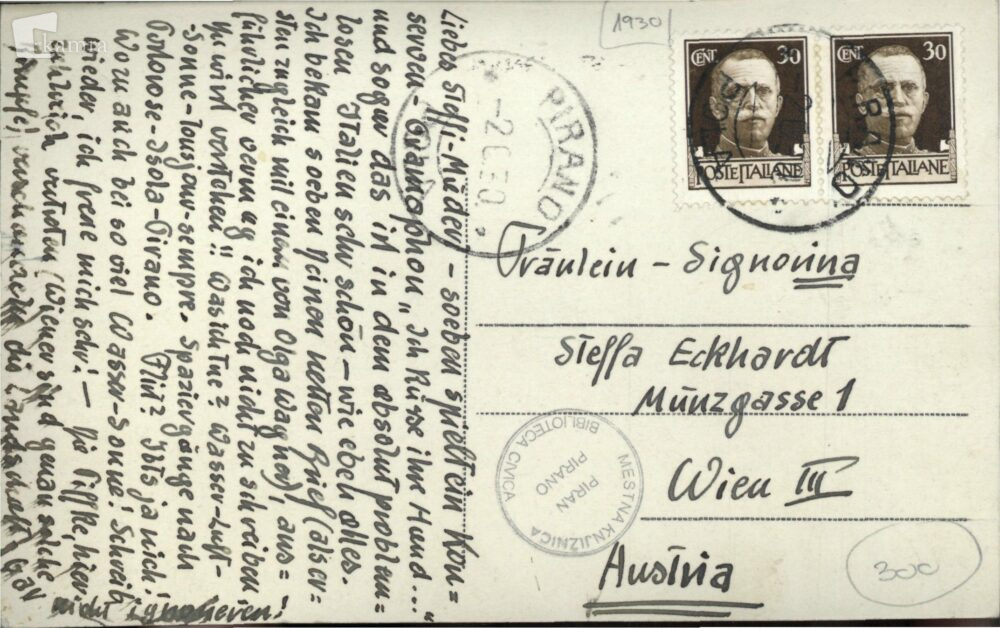 kamra
1930
Liebes Steffi-Mäderl – soeben spielt ein Kon=
serven-Grammophon „Ich küsse ihre Hand..."
und sogar das ist in dem absolut problem=
losen Italien sehr schön – wie eben alles.
Ich bekam soeben Deinen netten Brief (als er=
sten zugleich mit einem von Olga Wagner), aus=
führlicher vermag ich noch nicht zu schreiben
Du wirst verstehen!! Was ich tue? Wasser-Luft-
Sonne-toujour-sempre. Spaziergänge nach
Portorose-Isola-Pirano. Flirt? Gibts ja nicht!
Wozu auch bei so viel Wasser-Sonne! Schreib
wieder, ich freue mich sehr! – Die Piffke, hier
zahlreich vertreten (Wiener sind genau solche
verschandeln die Landschaft gar
nicht ignorieren!
PIRANO
-2.6.30.
CENT. 30
POSTE ITALIANE
CENT. 30
POSTE ITALIANE
Fräulein – Signorina
Steffa Eckhardt
Münzgasse 1
Wien III
Austria
MESTNA KNJIŽNICA
PIRAN
PIRANO
BIBLIOTECA CIVICA
300